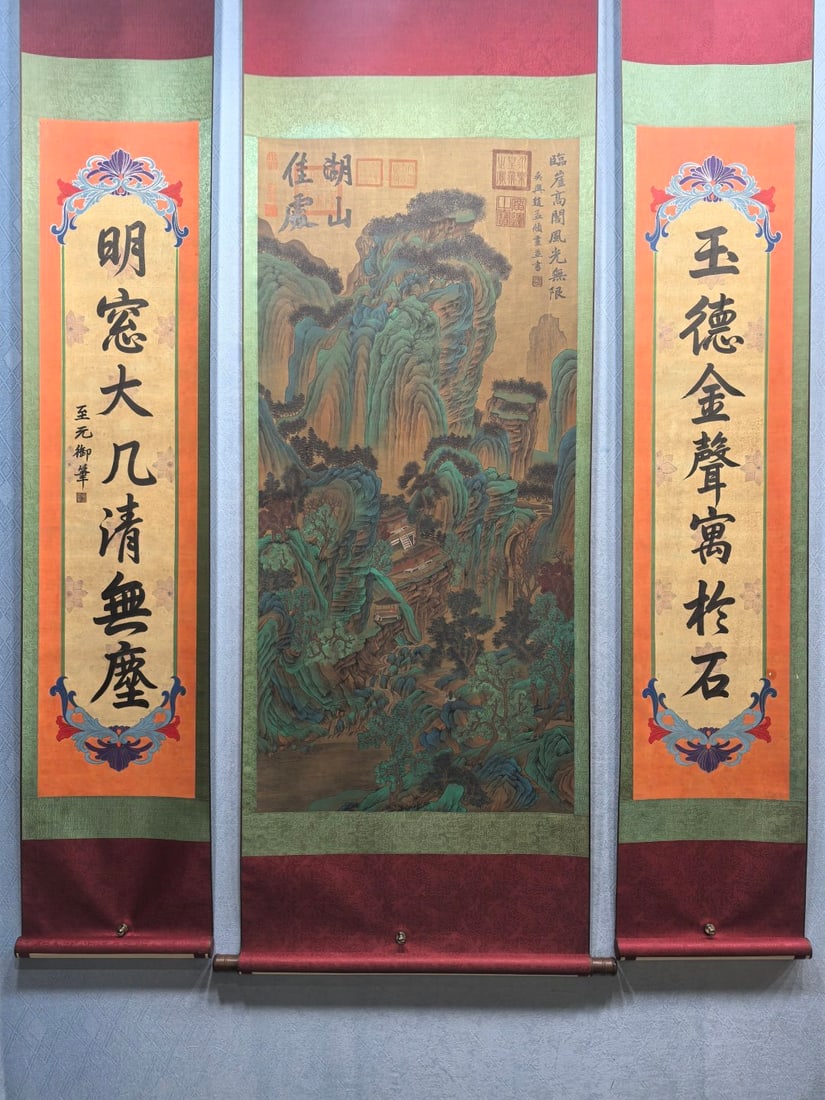 玉德金聲寓於石
臨崖高閣風光無限
吳興趙孟頫畫並書
湖山
佳處
明窓大几清無塵
至元御筆